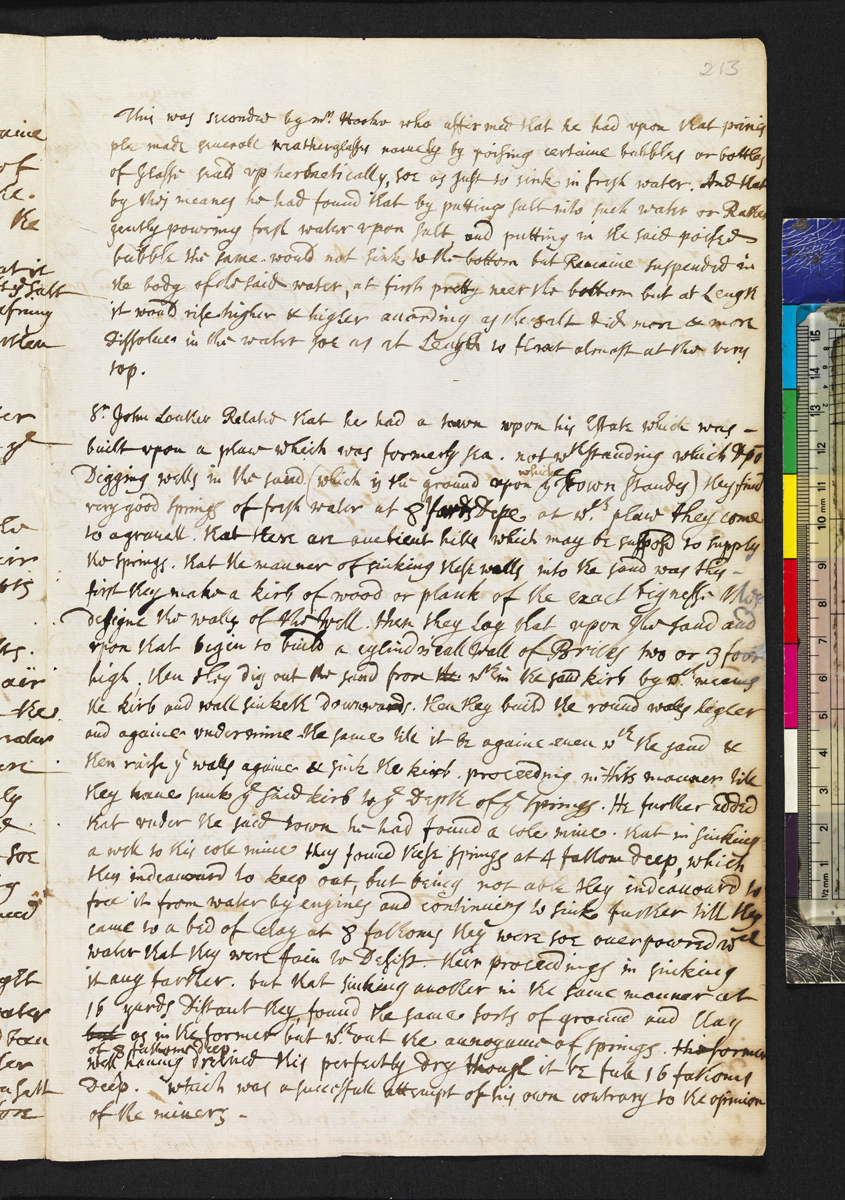 213
This was seconded by mr. Hooke who affirmed that he had upon that princi
ple made severall weatherglasses namely by poising certaine bubbles or bottles
of glasse seald up hermetically, soe as just to sink in fresh water. And that
by this meanes he had found that by putting salt into such water or Rather
gently powring fresh water upon salt and putting in the said poised
bubble the same would not sink to the bottom but Remaine suspended in
the body of the said water, at first pretty neer the bottom but at Length
it would rise higher & higher according as the salt did more & more
dissolve in the water soe as at Length to float almost at the very
top.
Sr. John Lowther Related that he had a town upon his Estate which was -
built upon a place which was formerly sea. not wthstanding which upo
Digging wells in the sand (which is the ground upon which ye town standes) they find
very good springs of fresh water at 8 yards Depe at wch. place they come
to a gravell. that there are ambient hills which may be suppos'd to supply
the springs. that the manner of sinking these wells into the sand was this -
first they make a kirb of wood or plank of the exact bignesse they
designe the walls of the well. then they Lay that upon the sand and
upon that begin to build a cylindricall wall of Bricks two or 3 foot
high. then they dig out the sand from the wthin the said kirb by wch. meanes
the kirb and wall sinketh downwards. then they build the round walls higher
and againe undermine the same till it be againe even wth the sand &
then raise ye walls againe & sink the kirb. proceeding in this manner till
they have sunk ye said kirb to ye Depth of ye springs. He further added
that under the said town he had found a cole mine. that in sinking
a well to his cole mine they found these springs at 4 fathom deep, which
they indeavourd to keep out, but being not able they indeavourd to
free it from water by engines and continuing to sink further till they
came to a bed of clay at 8 fathoms they were soe overpowred wth
water that they were fain to Desist their proceedings in sinking
it any farther. but that sinking another in the same manner at
16 yards distant they found the same sorts of ground and clay
but as in the former but wthout the annoyance of springs. the former
of 8 fathoms deep
well having dreined this perfectly dry though it be full 16 fathoms
Deep. which was a successfull attempt of his own contrary to the opinion
of the miners -